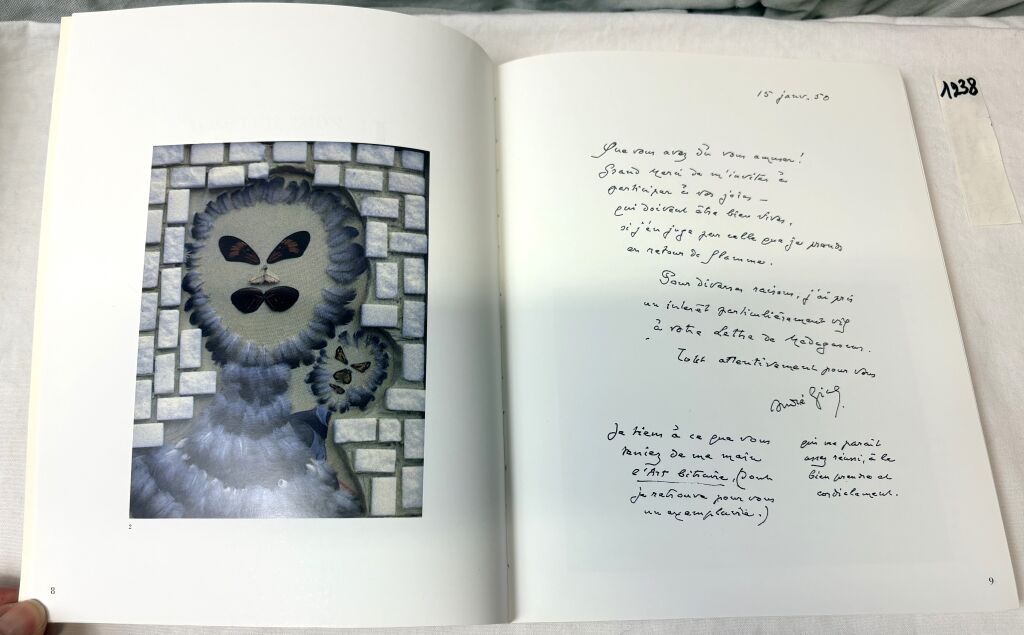 15 janv. 50
Que vous avez dû vous amuser!
Grand merci de m'inviter à
participer à vos joies –
qui doivent être bien vives,
si j'en juge par celle que je prends
en retour de flamme.
Pour diverses raisons, j'ai pris
un intérêt particulièrement vif
à votre Lettre de Madagascar.
Tout attentivement pour vous
André Gide.
Je tiens à ce que vous
teniez de ma main
l'Art bitraire, (dont
je retrouve pour vous
un exemplaire)
qui me paraît
assez réussi, à le
bien prendre et
cordialement.
2
8
9
1238